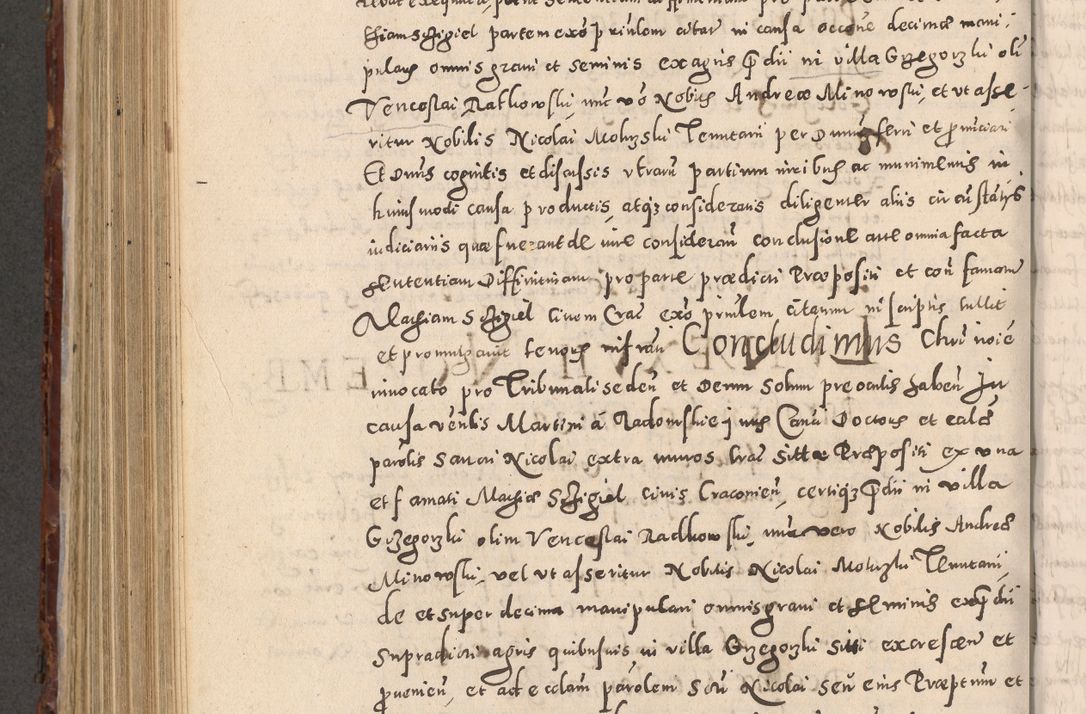 thiam Sczigiel partem exo priulem citat in causa accone decimae mani
pularis omnis grani et seminis ex agris pdii in villa Grzegorzki oli
Venceslai Radkowski, nunc vo Nobilis Andreae Minowski, et vt asse-
ritur Nobilis Nicolai Molyski Tenutarii per Dnum ferri et pnunciari
Et Dnus cognitis et discussis vtrarum partium iuribus ac munimentis in
huiusmodi causa productis, atqz consideratis diligenter aliis circumstantys
iudiciariis quae fuerant de iure consideran conclusione ante omnia facta
sententiam Diffinitiuam pro parte praedicti Praepositi et con famatum
Mathiam Sczigiel Ciuem Crac exo priulem citatum in scriptis tullit
et promulgauit tenoris infrati Concludimus Christi noie
inuocato pro Tribunali seden et Deum Solum pre oculis haben In
causa venlis Martini a Radomskie I vris Canci Doctoris et eccles
parolis Sancti Nicolai extra muros Crac sittae Praepositi ex vna
et famati Mathiae Sczigiel ciuis Cracouien, certiqz pdii in villa
Grzegorzki olim Venceslai Radkowski, nunc vero Nobilis Andreae
Minowski, vel vt asseritur Nobilis Nicolai Moluski Tenutarii,
de et super decima manipulari omnis grani et seminis ex pdii
supradicti agris quibusuis in villa Grzegorzki siti excrescen et
puenien, et ad ecclam parolem Scti Nicolai seu eius Praeptum et